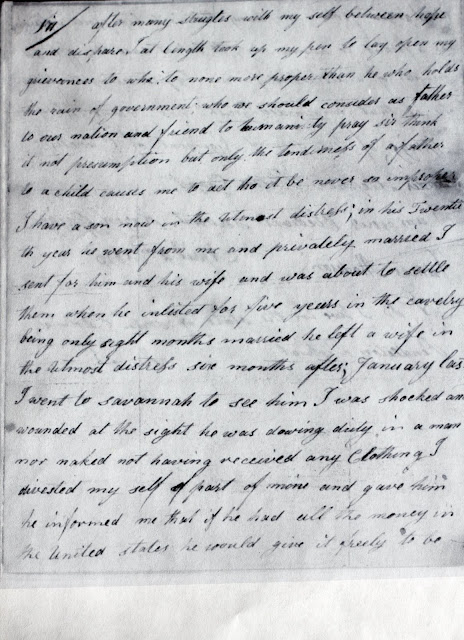 Sir/ after many strugles with my self between hope
and dispare I at length took up my pen to lay open my
grievances to who. to none more proper than he who holds
the rain of government who we should consider as father
to our nation and friend to humanity pray sir think
it not presumption but only the tenderness of a father
to a child causes me to act tho it be never so improper
I have a son now in the utmost distress; in his Twentie
th year he went from me and privately married I
sent for him and his wife and was about to settle
them when he inlisted for five years in the cavelry
being only eight months married he left a wife in
the utmost distress six months after; January las
I went to savannah to see him I was shocked an
wounded at the sight he was dowing duty in a man
nor naked not having received any Clothing I
divested my self of part of mine and gave him
he informed me that if he had all the money in
the United states he would give it freely to be